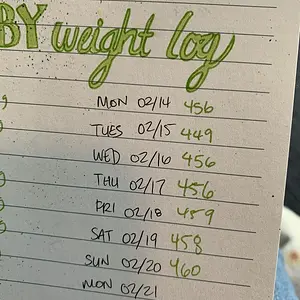 BY weight log
MON 02/14 456
TUES 02/15 449
WED 02/16 456
THU 02/17 456
FRI 02/18 459
SAT 02/19 458
SUN 02/20 460
MON 02/21